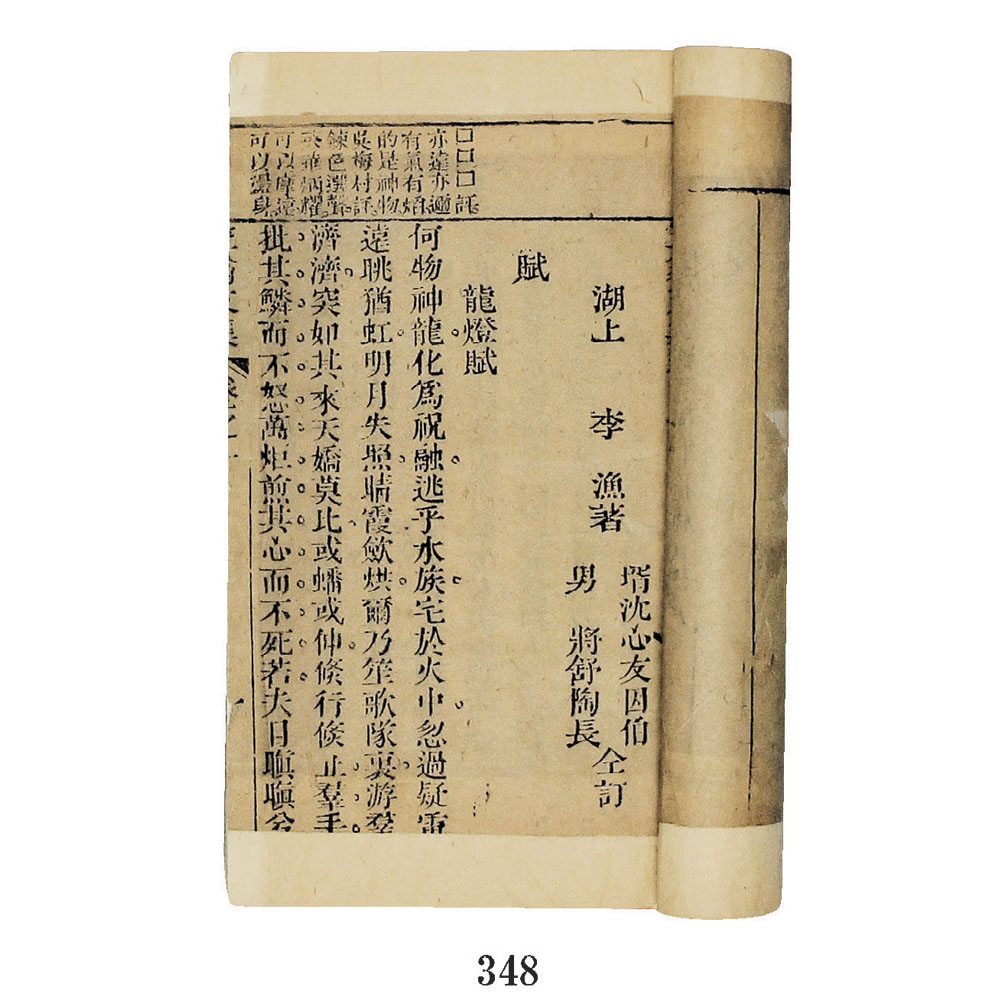 湖上 李 漁著
壻沈心友因伯
男 將舒陶長
仝訂
賦
龍燈賦
何物神龍化爲祝融逃乎水族宅於火中忽過疑雷
遠眺猶虹明月失照晴霞歛烘爾乃笙歌隊裏游羣
濟濟突如其來天嬌莫比或蟠或伸倐行倐止羣手
批其鱗而不怒萬炬前其心而不死若夫日瞋瞋兮
□□□評
亦遠亦邇
有氣有焰
的是神物
吳梅村評
鍊色選聲
華炳耀
可以摩遠
可以盪身
笠翁文集 卷之一
348